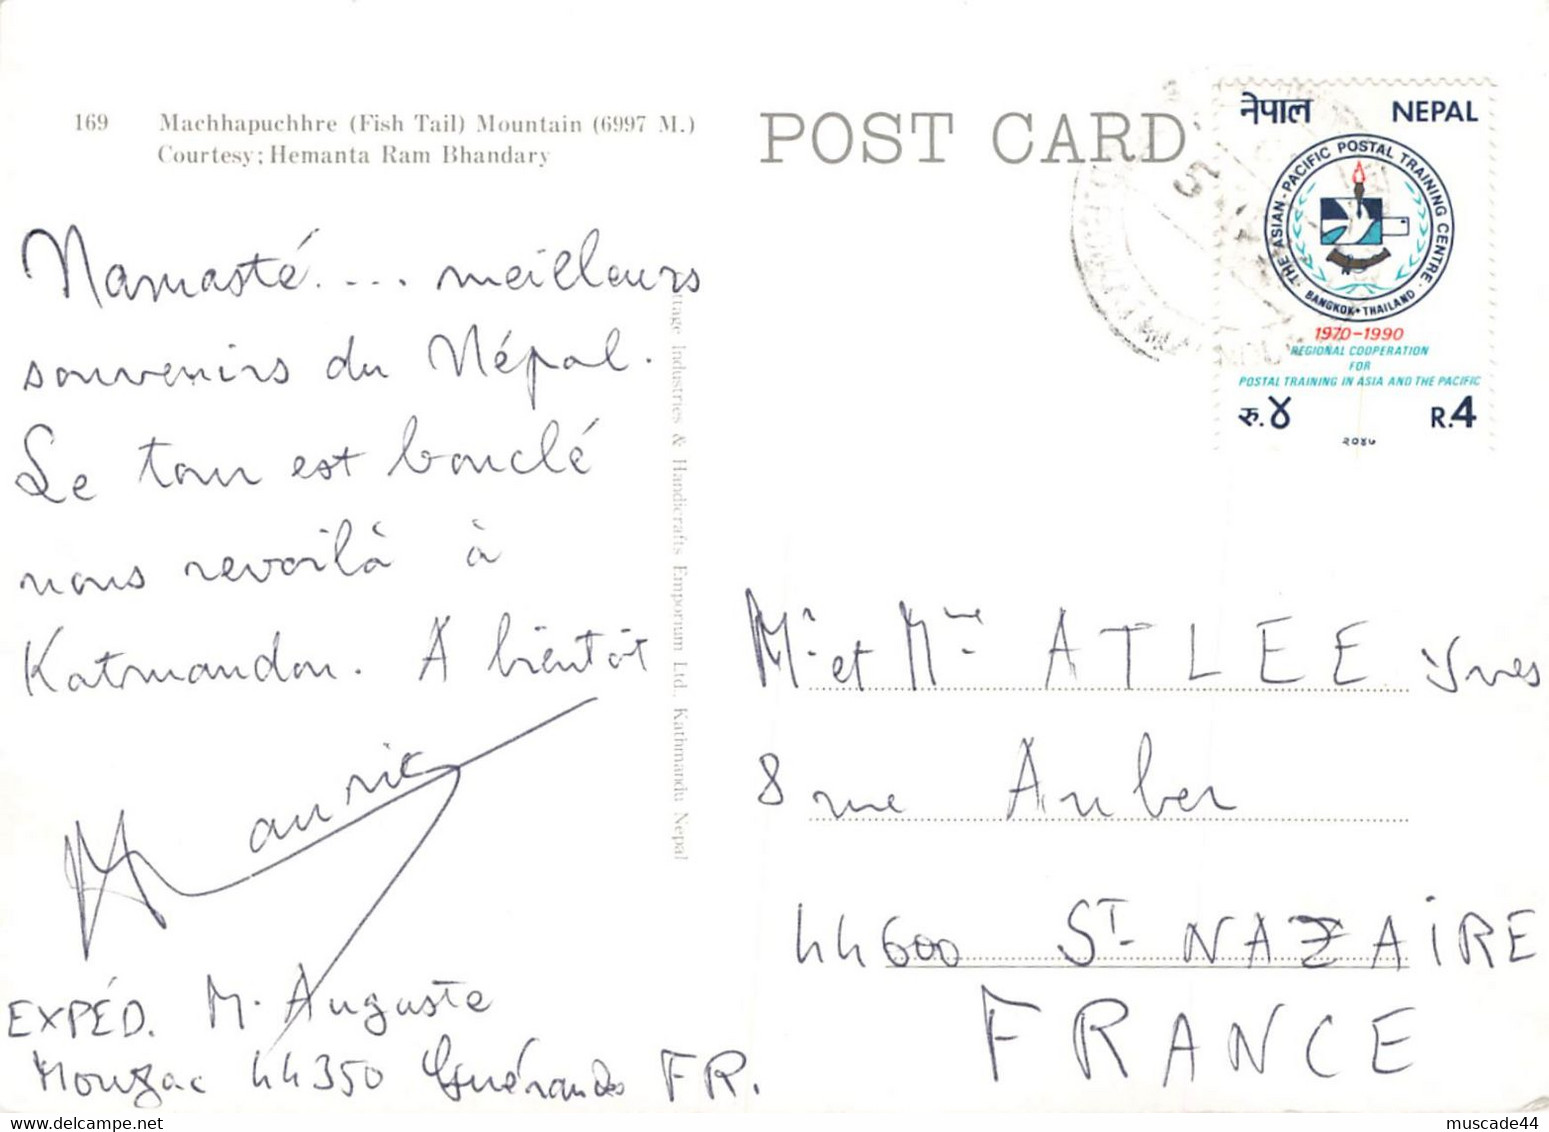 169 Machhapuchhre (Fish Tail) Mountain (6997 M.)
Courtesy: Hemanta Ram Bhandary
POST CARD
नेपाल NEPAL
THE ASIAN - PACIFIC POSTAL TRAINING CENTRE
BANGKOK • THAILAND
1970-1990
REGIONAL COOPERATION
FOR
POSTAL TRAINING IN ASIA AND THE PACIFIC
रु. ४ R.4
२०४७
Namasté.... meilleurs
souvenirs du Népal.
Le tour est bouclé
nous revoilà à
Katmandou. A bientôt
Mauric
EXPÉD. M. Auguste
Mouzac 44350 Guérande FR.
ttage Industries & Handicrafts Emporium Ltd., Kathmandu Nepal
Mr et Mme ATLEE Yves
8 rue Auber
44600 ST NAZAIRE
FRANCE
muscade44